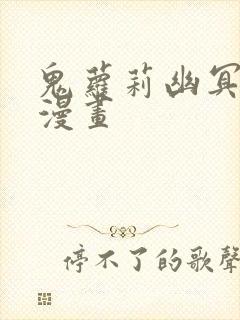 鬼蘿莉幽冥
漫畫
停不了的歌聲